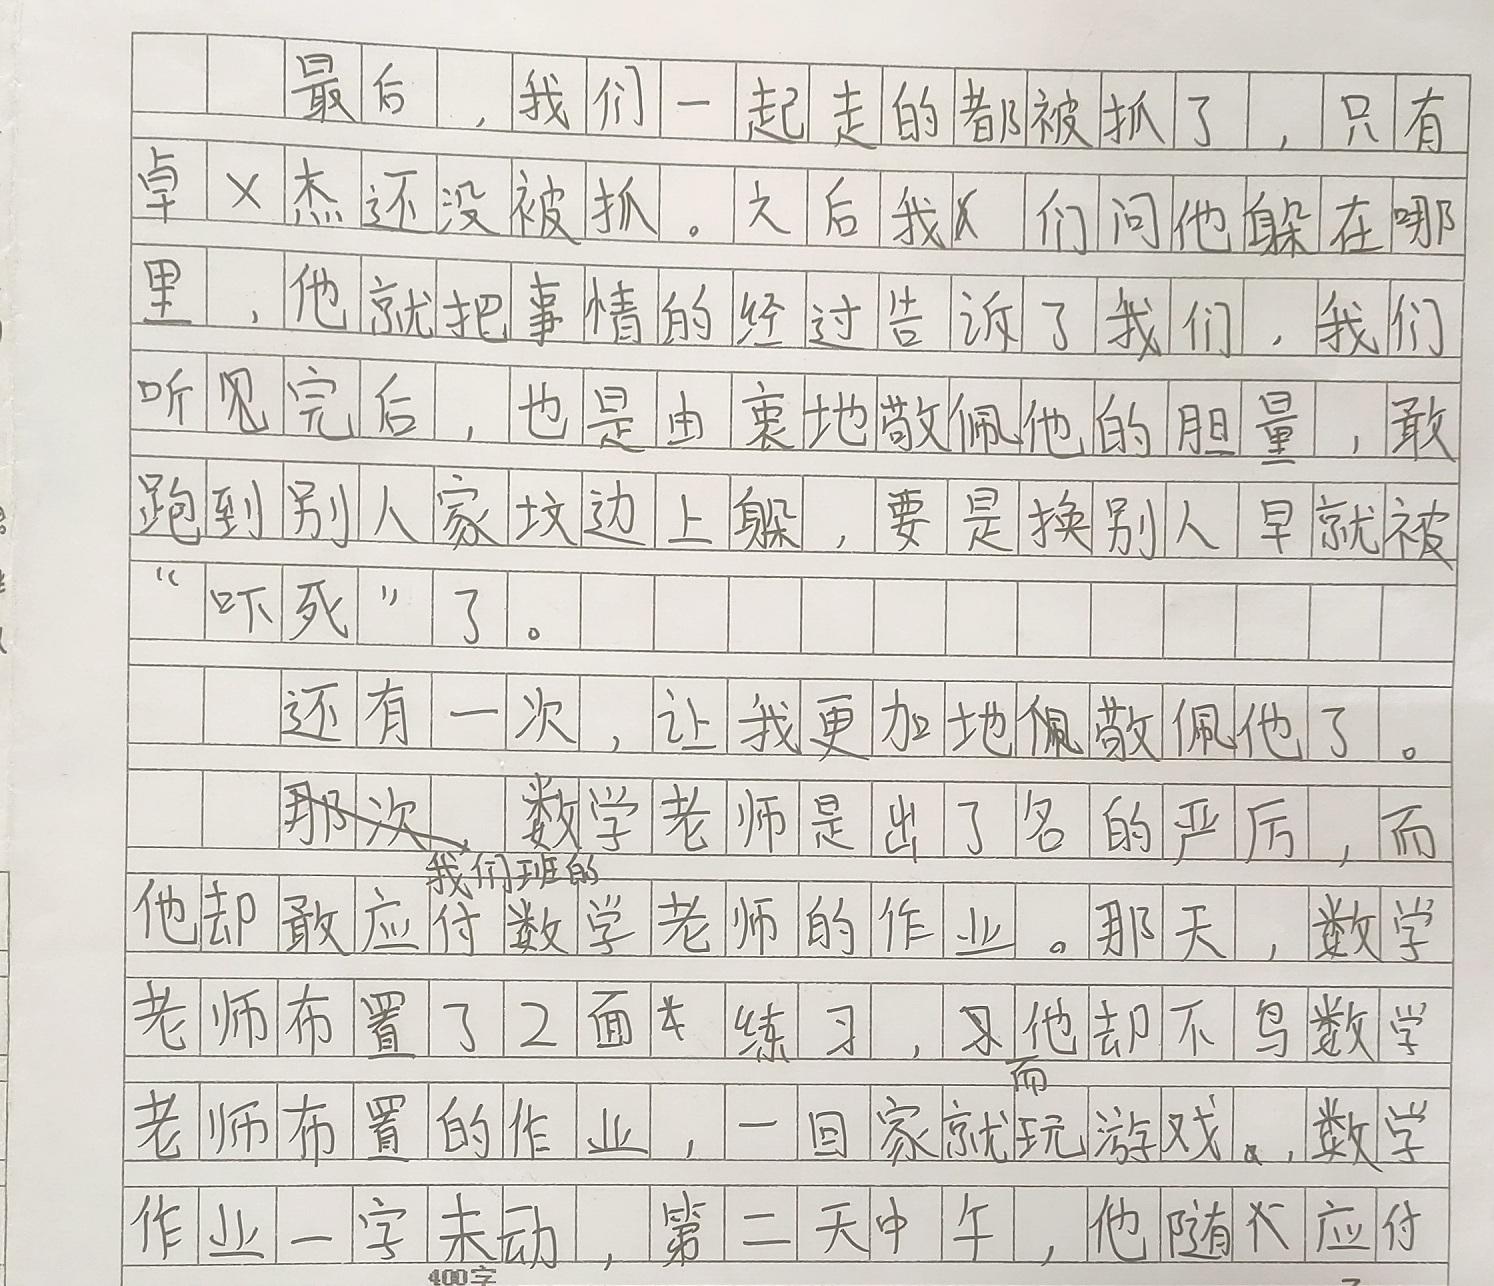 最后，我们一起走的都被抓了，只有
卓×杰还没被抓。之后我们问他躲在哪
里，他就把事情的经过告诉了我们，我们
听见完后，也是由衷地敬佩他的胆量，敢
跑到别人家坟边上躲，要是换别人早就被
“吓死”了。
还有一次，让我更加地佩敬佩他了。
那次，数学老师是出了名的严厉，而
我们班的
他却敢应付数学老师的作业。那天，数学
老师布置了2面练习，他却不鸟数学
而
老师布置的作业，一回家就玩游戏，数学
作业一字未动，第二天中午，他随应付
400字